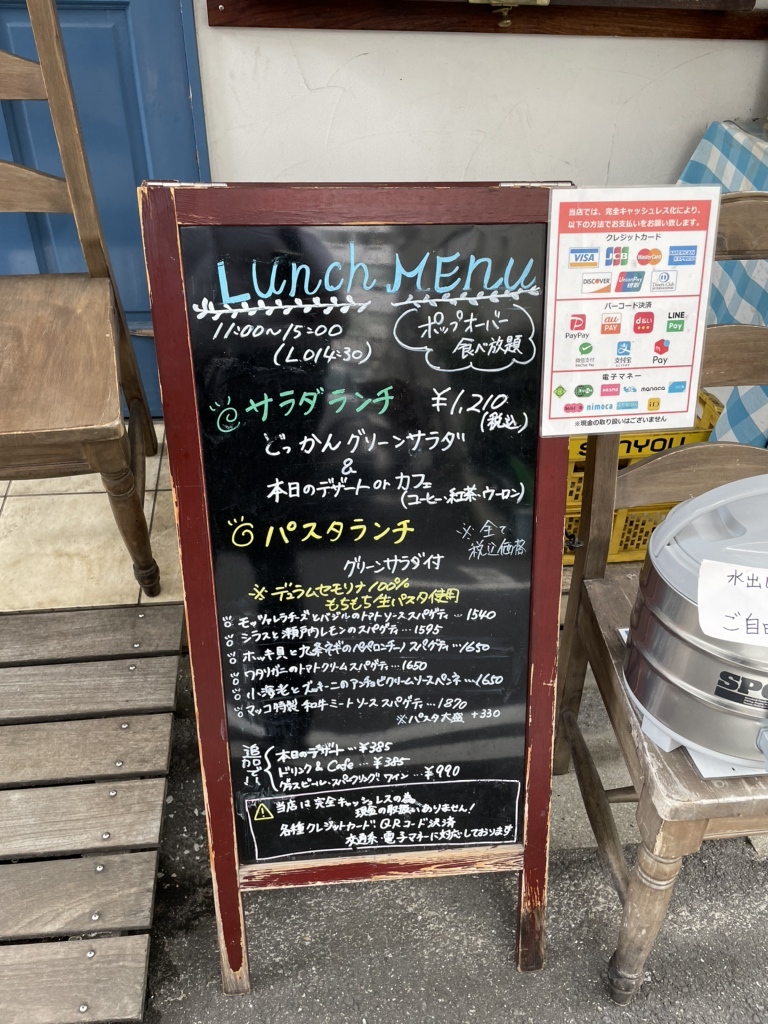 Lunch MENU
11:00~15:00
(L.O14:30)
ポップオーバー
食べ放題
サラダランチ ¥1,210
(税込)
どっかんグリーンサラダ
&
本日のデザート or カフェ
(コーヒー、紅茶、ウーロン)
パスタランチ
※全て
税込価格
グリーンサラダ付
※デュラムセモリナ100%
もちもち生パスタ使用
モッツァレラチーズとバジルのトマトソーススパゲティ…1540
シラスと瀬戸内レモンのスパゲティ…1595
ホッキ貝と九条ネギのペペロンチーノスパゲティ…1650
ワタリガニのトマトクリームスパゲティ…1650
小海老とズッキーニのアンチョビクリームソースペンネ…1650
マッコ特製 和牛ミートソーススパゲティ…1870
※パスタ大盛 +330
追加で
本日のデザート…¥385
ドリンク & Cafe…¥385
グラスビール、スパークリングワイン…¥990
当店は完全キャッシュレスの為、
現金の取扱いありません!
各種クレジットカード、QRコード決済
交通系・電子マネーに対応しております
当店では、完全キャッシュレス化により、
以下の方法でお支払いをお願い致します。
クレジットカード
VISA JCB MasterCard AMERICAN EXPRESS
DISCOVER UnionPay 银联 Diners Club
バーコード決済
PayPay au PAY d払い LINE Pay
微信支付 支付宝 Pay
電子マネー
manaca
nimoca
※現金の取り扱いはございません
SANYOU
水出し
ご自由
SPO